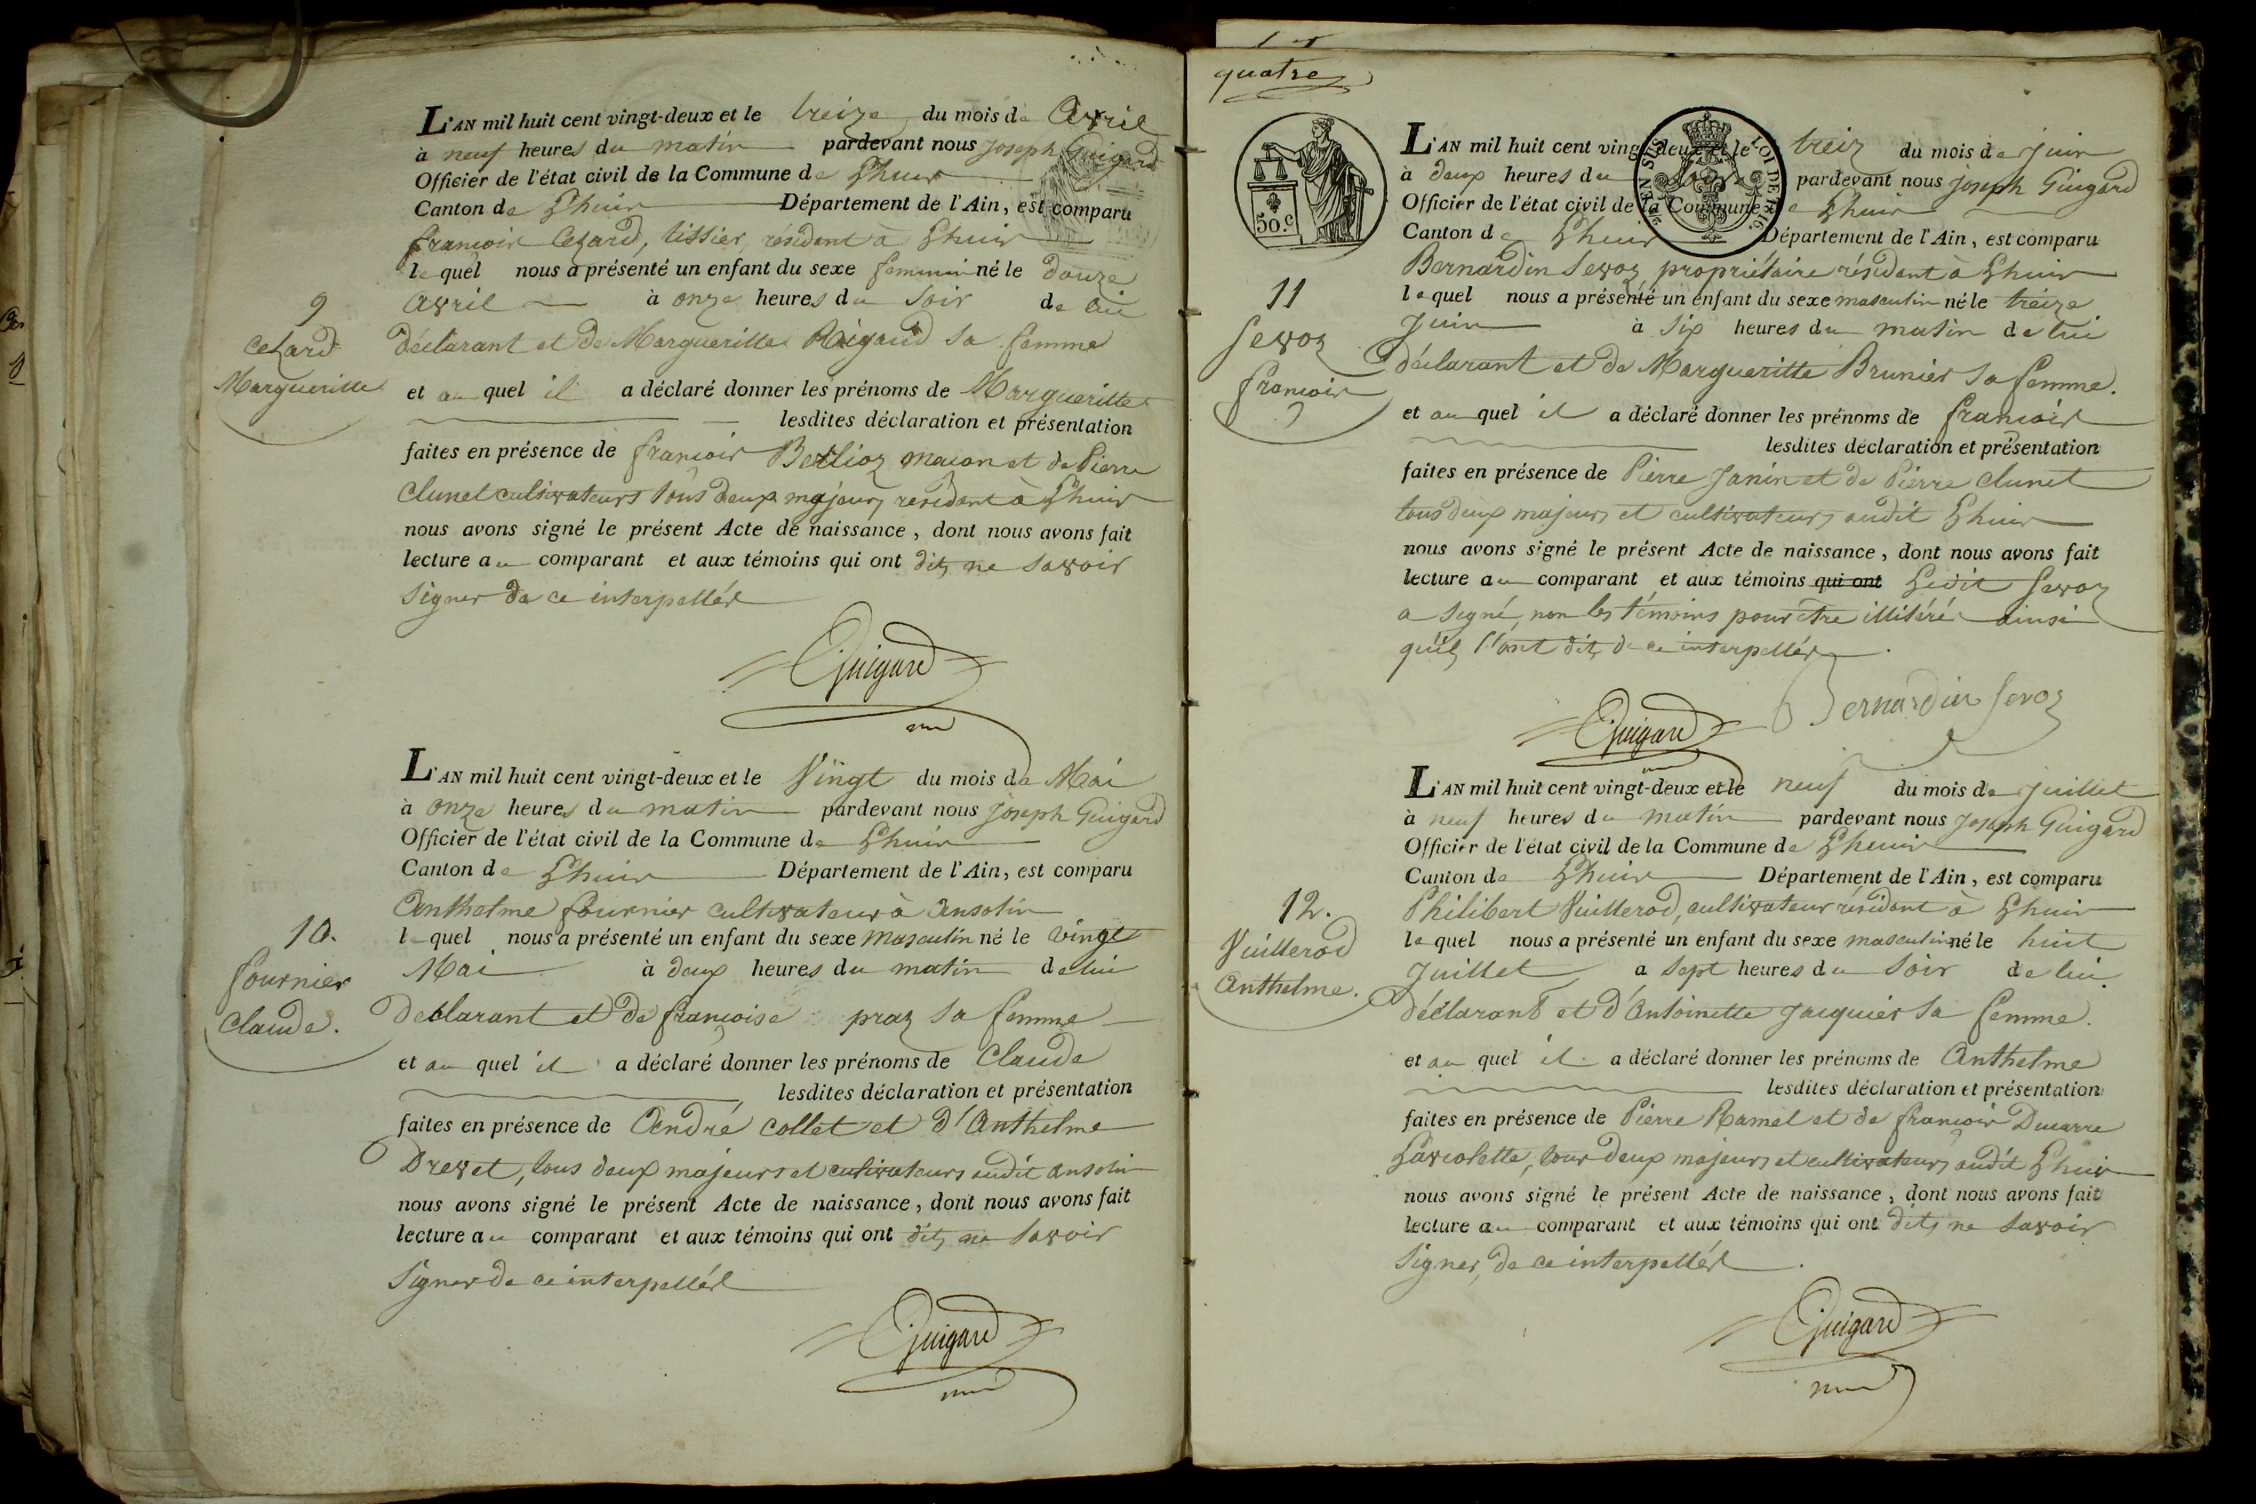 L'AN mil huit cent vingt-deux et le treize du mois de Avril
à neuf heures du matin pardevant nous Joseph Guigard
Officier de l'état civil de la Commune de Lhuis
Canton de Lhuis Département de l'Ain, est comparu
françois Cezard, tissier, résidant à Lhuis
lequel nous a présenté un enfant du sexe feminin né le douze
avril à onze heures du soir de lui
9
Cezard
Margueritte
déclarant et de Margueritte Rigaud sa femme
et au quel il a déclaré donner les prénoms de Margueritte
lesdites déclaration et présentation
faites en présence de françois Berlioz maçon et de Pierre
Clunet cultivateurs tous deux majeurs residant à Lhuis
nous avons signé le présent Acte de naissance, dont nous avons fait
lecture au comparant et aux témoins qui ont dit, ne savoir
signer de ce interpellés
Guigard
L'AN mil huit cent vingt-deux et le Vingt du mois de Mai
à onze heures du matin pardevant nous Joseph Guigard
Officier de l'état civil de la Commune de Lhuis
Canton de Lhuis Département de l'Ain, est comparu
Anthelme fournier cultivateur à Ansolin
lequel nous a présenté un enfant du sexe masculin né le vingt
Mai à deux heures du matin de lui
10.
fournier
Claude.
declarant et de françoise praz sa femme
et au quel il a déclaré donner les prénoms de Claude
lesdites déclaration et présentation
faites en présence de André Collet et d'Anthelme
Drevet, tous deux majeurs et cultivateurs audit ansolin
nous avons signé le présent Acte de naissance, dont nous avons fait
lecture au comparant et aux témoins qui ont dit, ne savoir
signer de ce interpellés
Guigard
quatre
50.c
TIMBRE EN SUS
LOI DE 1816.
L'AN mil huit cent vingt-deux et le treiz du mois de juin
à deux heures du soir pardevant nous Joseph Guigard
Officier de l'état civil de la Commune de Lhuis
Canton de Lhuis Département de l'Ain, est comparu
Bernardin Sevoz propriétaire résidant à Lhuis
lequel nous a présenté un enfant du sexe masculin né le treize
Juin à six heures du matin de lui
11
Sevoz
françois
déclarant et de Margueritte Brunier sa femme.
et au quel il a déclaré donner les prénoms de françois
lesdites déclaration et présentation
faites en présence de Pierre Janin et de Pierre Clunet
tous deux majeurs et cultivateurs audit Lhuis
nous avons signé le présent Acte de naissance, dont nous avons fait
lecture au comparant et aux témoins qui ont Ledit Sevoz
a signé, non les témoins pour être illitérés ainsi
qu'ils l'ont dit, de ce interpellés.
Guigard Bernardin Sevoz
L'AN mil huit cent vingt-deux et le neuf du mois de juillet
à neuf heures du matin pardevant nous Joseph Guigard
Officier de l'état civil de la Commune de Lhuis
Canton de Lhuis Département de l'Ain, est comparu
Philibert Vuillerod, cultivateur résidant à Lhuis
lequel nous a présenté un enfant du sexe masculin né le huit
Juillet à sept heures du soir de lui
12.
Vuillerod
Anthelme.
déclarant et d'Antoinette Jacquier sa femme.
et au quel il a déclaré donner les prénoms de Anthelme
lesdites déclaration et présentation
faites en présence de Pierre Ramel et de françois Ducarre
Laviolette, tous deux majeurs et cultivateurs audit Lhuis
nous avons signé le présent Acte de naissance, dont nous avons fait
lecture au comparant et aux témoins qui ont dit, ne savoir
signer, de ce interpellés.
Guigard